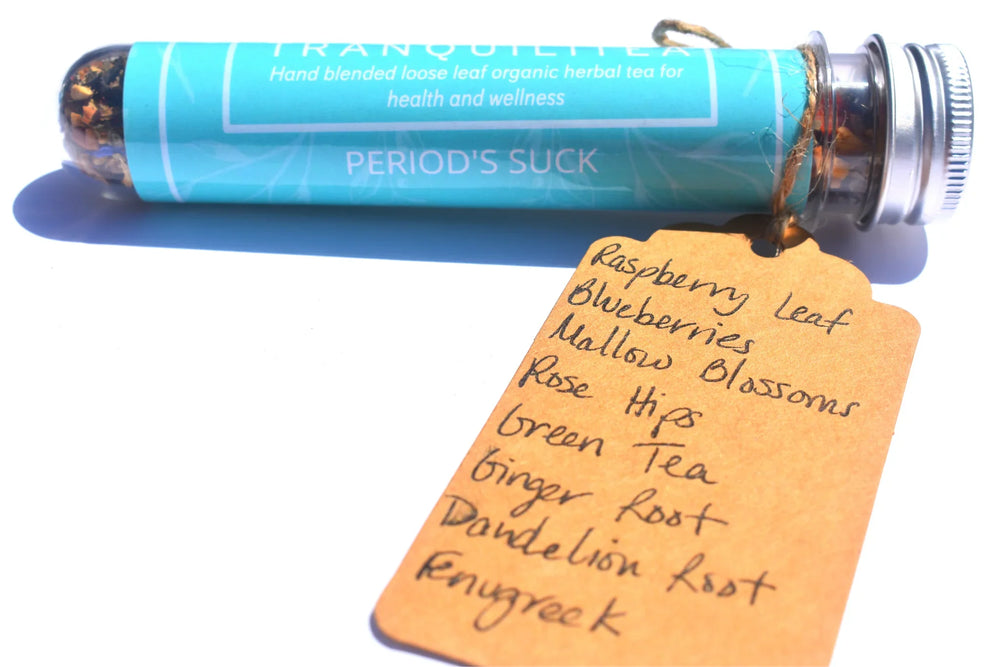 TRANQUILITEA
Hand blended loose leaf organic herbal tea for
health and wellness
PERIOD'S SUCK
Raspberry Leaf
Blueberries
Mallow Blossoms
Rose Hips
Green Tea
Ginger Root
Dandelion Root
Fenugreek